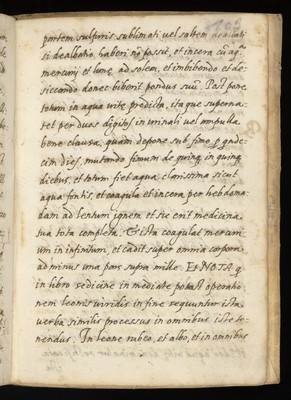 partem sulfuris sublimati vel saltem dealbati
si dealbatio haberi nõ possit, et incera cũ aq̃
mercurij et lune ad solem, et imbibendo et de-
siccando donec biberit pondus sui. Post pone
totum in aqua vite predicta, ita que superna-
tet per duos digitos in urinali vel ampulla
bene clausa, quam depone sub fimo p̱ quĩde-
cim dies, mutando fimum de quinq̃ in quinq̃
diebus, et totum fiet aqua clarissima sicut
aqua fontis, et coagula et incera, per hebdoma-
dam ad lentum ignem et sic erit medicina
tua tota completa. Et ista coagulat mercuri-
um in infinitum, et cadit super omnia corpora
ad minus una pars supra mille. Et NOTA q̃
in libro medicine in medietate post operatio-
nem leonis viridis in fine sequuntur ista
verba similis processus in omnibus iste te-
nendus. In leone rubeo, et albo, et in omnibus